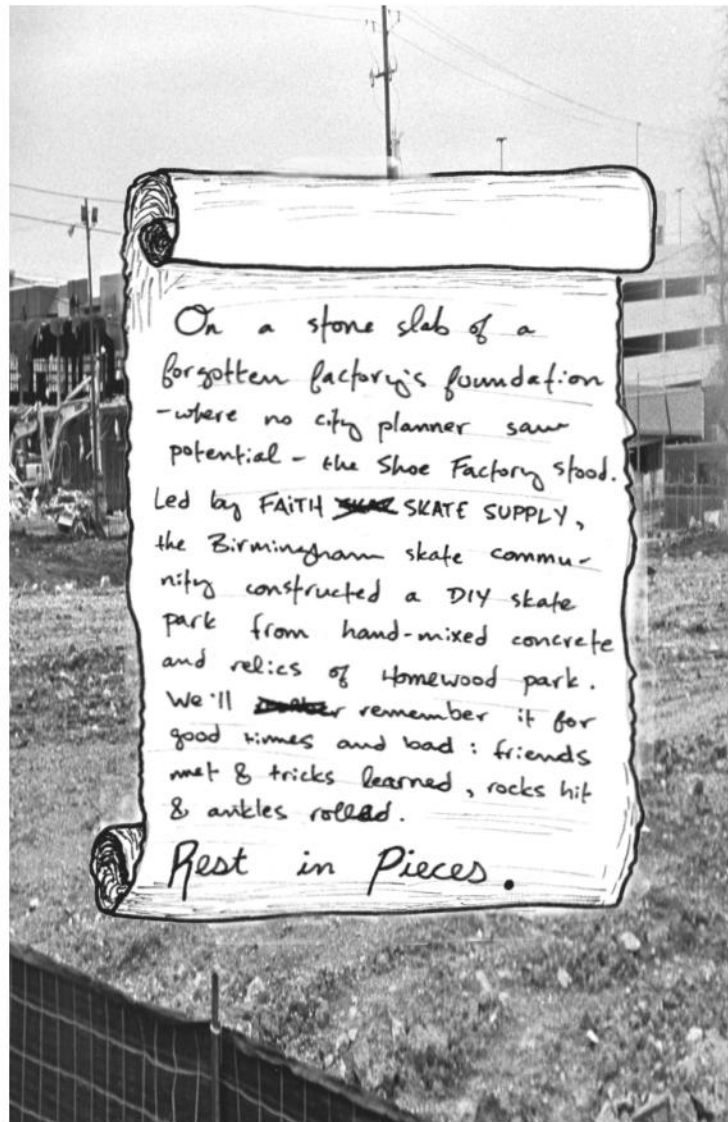 On a stone slab of a
forgotten factory's foundation
-where no city planner saw
potential - the Shoe Factory stood.
Led by FAiTH SKATE SUPPLY,
the Birmingham skate commu-
nity constructed a DIY skate
park from hand-mixed concrete
and relics of Homewood park.
We'll remember it for
good times and bad : friends
met & tricks learned, rocks hit
& ankles rolled.
Rest in Pieces.